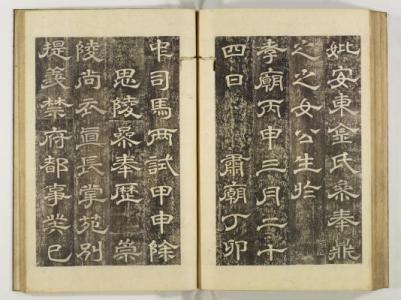 妣安東金氏參奉鼎
之之女公生於
孝廟丙申三月二十
四日　肅廟丁卯
中司馬兩試甲申除
思陵參奉歷　崇
陵尚衣直長掌苑別
提義禁府都事癸巳